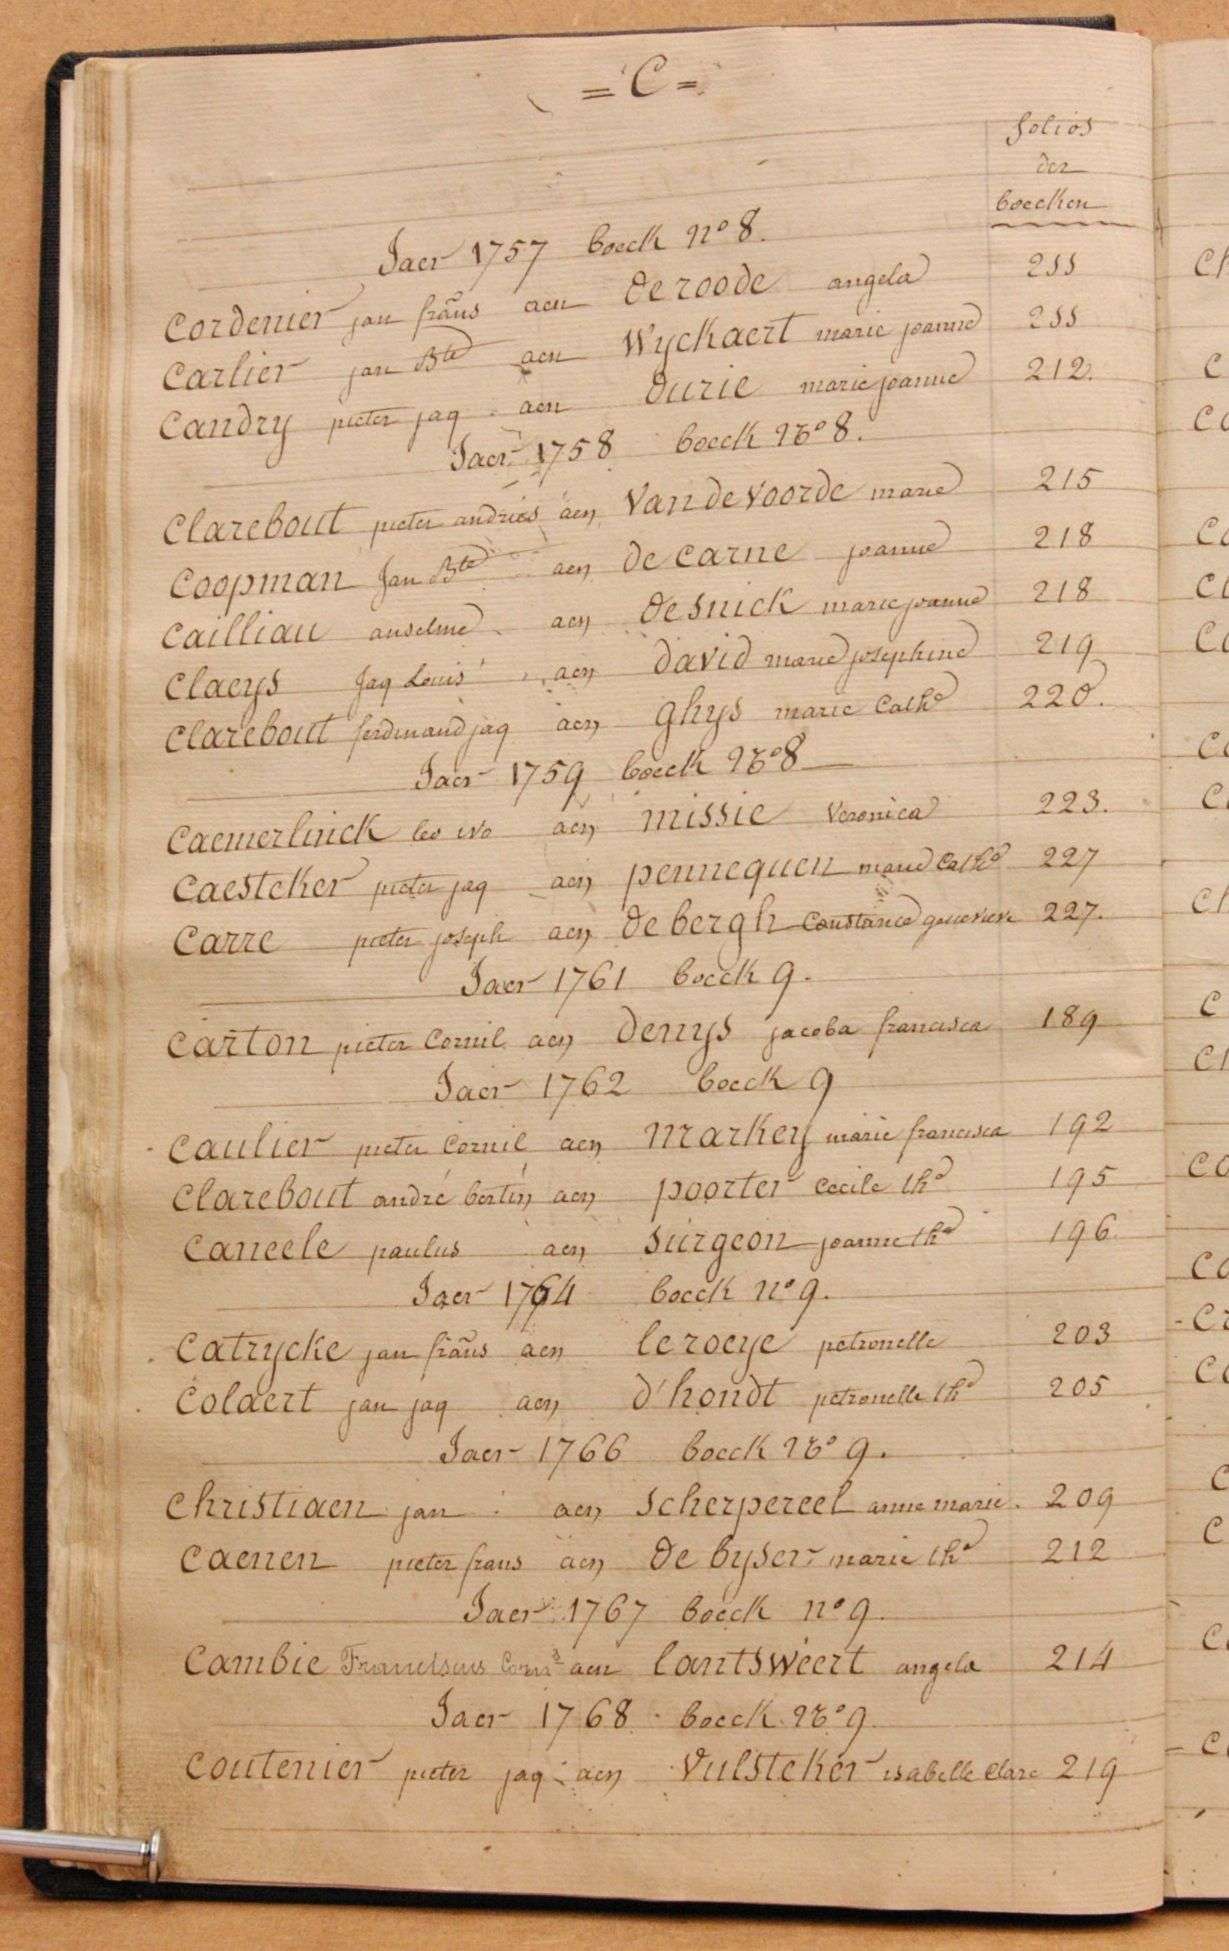 = C =
folios
der
boecken
Jaer 1757 boeck n° 8.
Cordenier jan frans aen de roode angela 211
Carlier jan Bte aen Wyckaert marie joanne 211
Candry pieter jaq. aen durie marie joanne 212.
Jaer 1758 boeck No 8.
Clarebout pieter andries aen Van de Voorde marie 215
Coopman Jan Bte aen de Carne joanne 218
Cailliau anselme aen de snick marie joanne 218
Claeys Jaq Louis aen david marie josephine 219
Clarebout ferdinand jaq aen ghys marie Cathe 220.
Jaer 1759 boeck No 8
Caemerlinck leo ivo aen missie veronica 223.
Caesteker pieter jaq aen pennequen marie Cathe 227
Carre pieter joseph aen de bergh Constance genevieve 227.
Jaer 1761 boeck 9.
Carton pieter Cornil aen denys jacoba francisca 189
Jaer 1762 boeck 9
Caulier pieter Cornil aen Markey marie francisca 192
Clarebout andré bertin aen poorter Cecile the 195
Caneele paulus aen Surgeon joanne the 196.
Jaer 1764 boeck n° 9.
Catrycke jan frans aen le roeye petronelle 203
Colaert jan jaq aen d'hondt petronelle the 205
Jaer 1766 boeck No 9.
Christiaen jan aen Scherpereel anne marie. 209
Caenen pieter frans aen de byser marie the 212
Jaer 1767 boeck n° 9.
Cambie Franciscus Corns aen lantsweert angela 214
Jaer 1768 boeck No 9
Coutenier pieter jaq. aen Vulsteker isabelle Clare 219